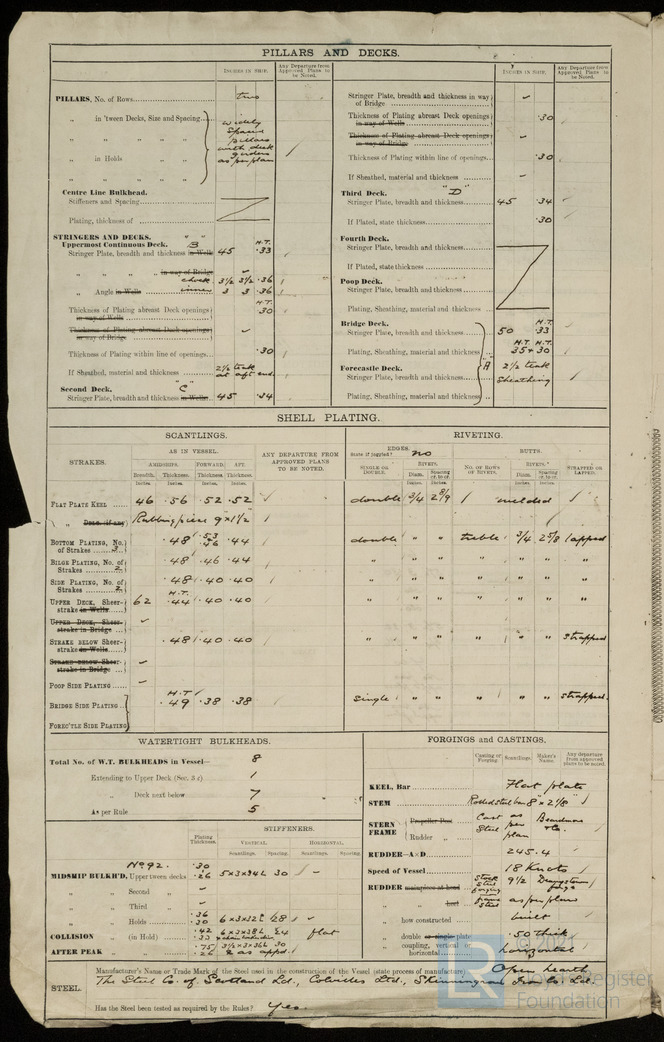 PILLARS AND DECKS.
INCHES IN SHIP.
Any Departure from Approved Plans to be Noted.
PILLARS, No. of Rows two
" in 'tween Decks, Size and Spacing widely
" " " " spaced
" " " " pillars
" in Holds " " with deck girders
" " " " as per plan
Centre Line Bulkhead.
Stiffeners and Spacing
Plating, thickness of
STRINGERS AND DECKS.
Uppermost Continuous Deck. "B" H.T.
Stringer Plate, breadth and thickness in Wells 45 .33
" " " " in way of Bridge
" Angle in Wells 3½ 3½ .36
inner 3 3 .36
H.T.
Thickness of Plating abreast Deck openings in way of Wells .30
Thickness of Plating abreast Deck openings in way of Bridge
Thickness of Plating within line of openings .30
If Sheathed, material and thickness 2½ teak at aft end
Second Deck. "C"
Stringer Plate, breadth and thickness in Wells 45 .34
INCHES IN SHIP.
Any Departure from Approved Plans to be Noted.
Stringer Plate, breadth and thickness in way of Bridge
Thickness of Plating abreast Deck openings in way of Wells .30
Thickness of Plating abreast Deck openings in way of Bridge
Thickness of Plating within line of openings .30
If Sheathed, material and thickness
Third Deck. "D"
Stringer Plate, breadth and thickness 45 .34
If Plated, state thickness .30
Fourth Deck.
Stringer Plate, breadth and thickness
If Plated, state thickness
Poop Deck.
Stringer Plate, breadth and thickness
Plating, Sheathing, material and thickness
Bridge Deck. H.T.
Stringer Plate, breadth and thickness 50 .33
H.T. H.T.
Plating, Sheathing, material and thickness "A" 35 + 30
Forecastle Deck. 2½ teak
Stringer Plate, breadth and thickness Sheathing
Plating, Sheathing, material and thickness
SHELL PLATING.
SCANTLINGS.
RIVETING.
STRAKES.
AS IN VESSEL.
AMIDSHIPS. FORWARD. AFT.
Breadth. Thickness. Thickness. Thickness.
Inches. Inches. Inches. Inches.
ANY DEPARTURE FROM APPROVED PLANS TO BE NOTED.
EDGES.
State if joggled? no
SINGLE OR DOUBLE.
RIVETS.
Diam. Spacing cr. to cr.
Inches. Inches.
BUTTS.
NO. OF ROWS OF RIVETS.
RIVETS.
Diam. Spacing cr. to cr.
Inches. Inches.
STRAPPED OR LAPPED.
FLAT PLATE KEEL 46 .56 .52 .52 double ¾ welded
" Dblg. (if any) Rubbing piece 9" x 1½"
BOTTOM PLATING, No. of Strakes .48 .53 .46 .44 double " " treble ¾ 2⅝ lapped
BILGE PLATING, No. of Strakes 2 .48 .46 .44 " " " " " " "
SIDE PLATING, No. of Strakes .48 .40 .40 " " " " " " "
H.T.
UPPER DECK, Sheerstrake in Wells 62 .44 .40 .40 " " " " " " "
UPPER DECK, Sheerstrake in Bridge
STRAKE BELOW SHEERstrake in Wells .48 .40 .40 " " " " " " strapped
STRAKE BELOW SHEERstrake in Bridge
POOP SIDE PLATING
H.T.
BRIDGE SIDE PLATING .49 .38 .38 single " " " " " strapped
FOREC'TLE SIDE PLATING
WATERTIGHT BULKHEADS.
Total No. of W.T. BULKHEADS in Vessel— 8
Extending to Upper Deck (Sec. 3 c) 1
" Deck next below 7
As per Rule 5
Plating Thickness.
STIFFENERS.
VERTICAL. HORIZONTAL.
Scantlings. Spacing. Scantlings. Spacing.
No 92. .30
MIDSHIP BULKH'D, Upper tween decks .26 5 x 3 x 34 L 30
" " Second "
" " Third "
" " Holds .36 .30 6 x 3 x 32 L 28
COLLISION " (in Hold) .42 .33 6 x 3 x 38 L 24 flat
AFTER PEAK " " .75 .26 3½ x 3 x 36 L 30 as appd.
FORGINGS and CASTINGS.
Casting or Forging. Scantlings. Maker's Name. Any departure from approved plans to be noted.
KEEL, Bar Flat plate
STEM Rolled steel bar 8" x 2⅛"
STERN FRAME Propeller Post Cast Steel as per plan Beardmore & Co.
Rudder "
RUDDER—A×D 245.4
Speed of Vessel 18 Knots
RUDDER mainpiece at head 9½
" " heel as per plan
" how constructed built
" double or single plate .50 thick
" coupling, vertical or horizontal horizontal
STEEL.
Manufacturer's Name or Trade Mark of the Steel used in the construction of the Vessel (state process of manufacture) Open hearth
The Steel Co. of Scotland Ld., Colvilles Ltd., Skinningrove Iron Co. Ld.
Has the Steel been tested as required by the Rules? Yes.
© 2021
Lloyd's Register
Foundation